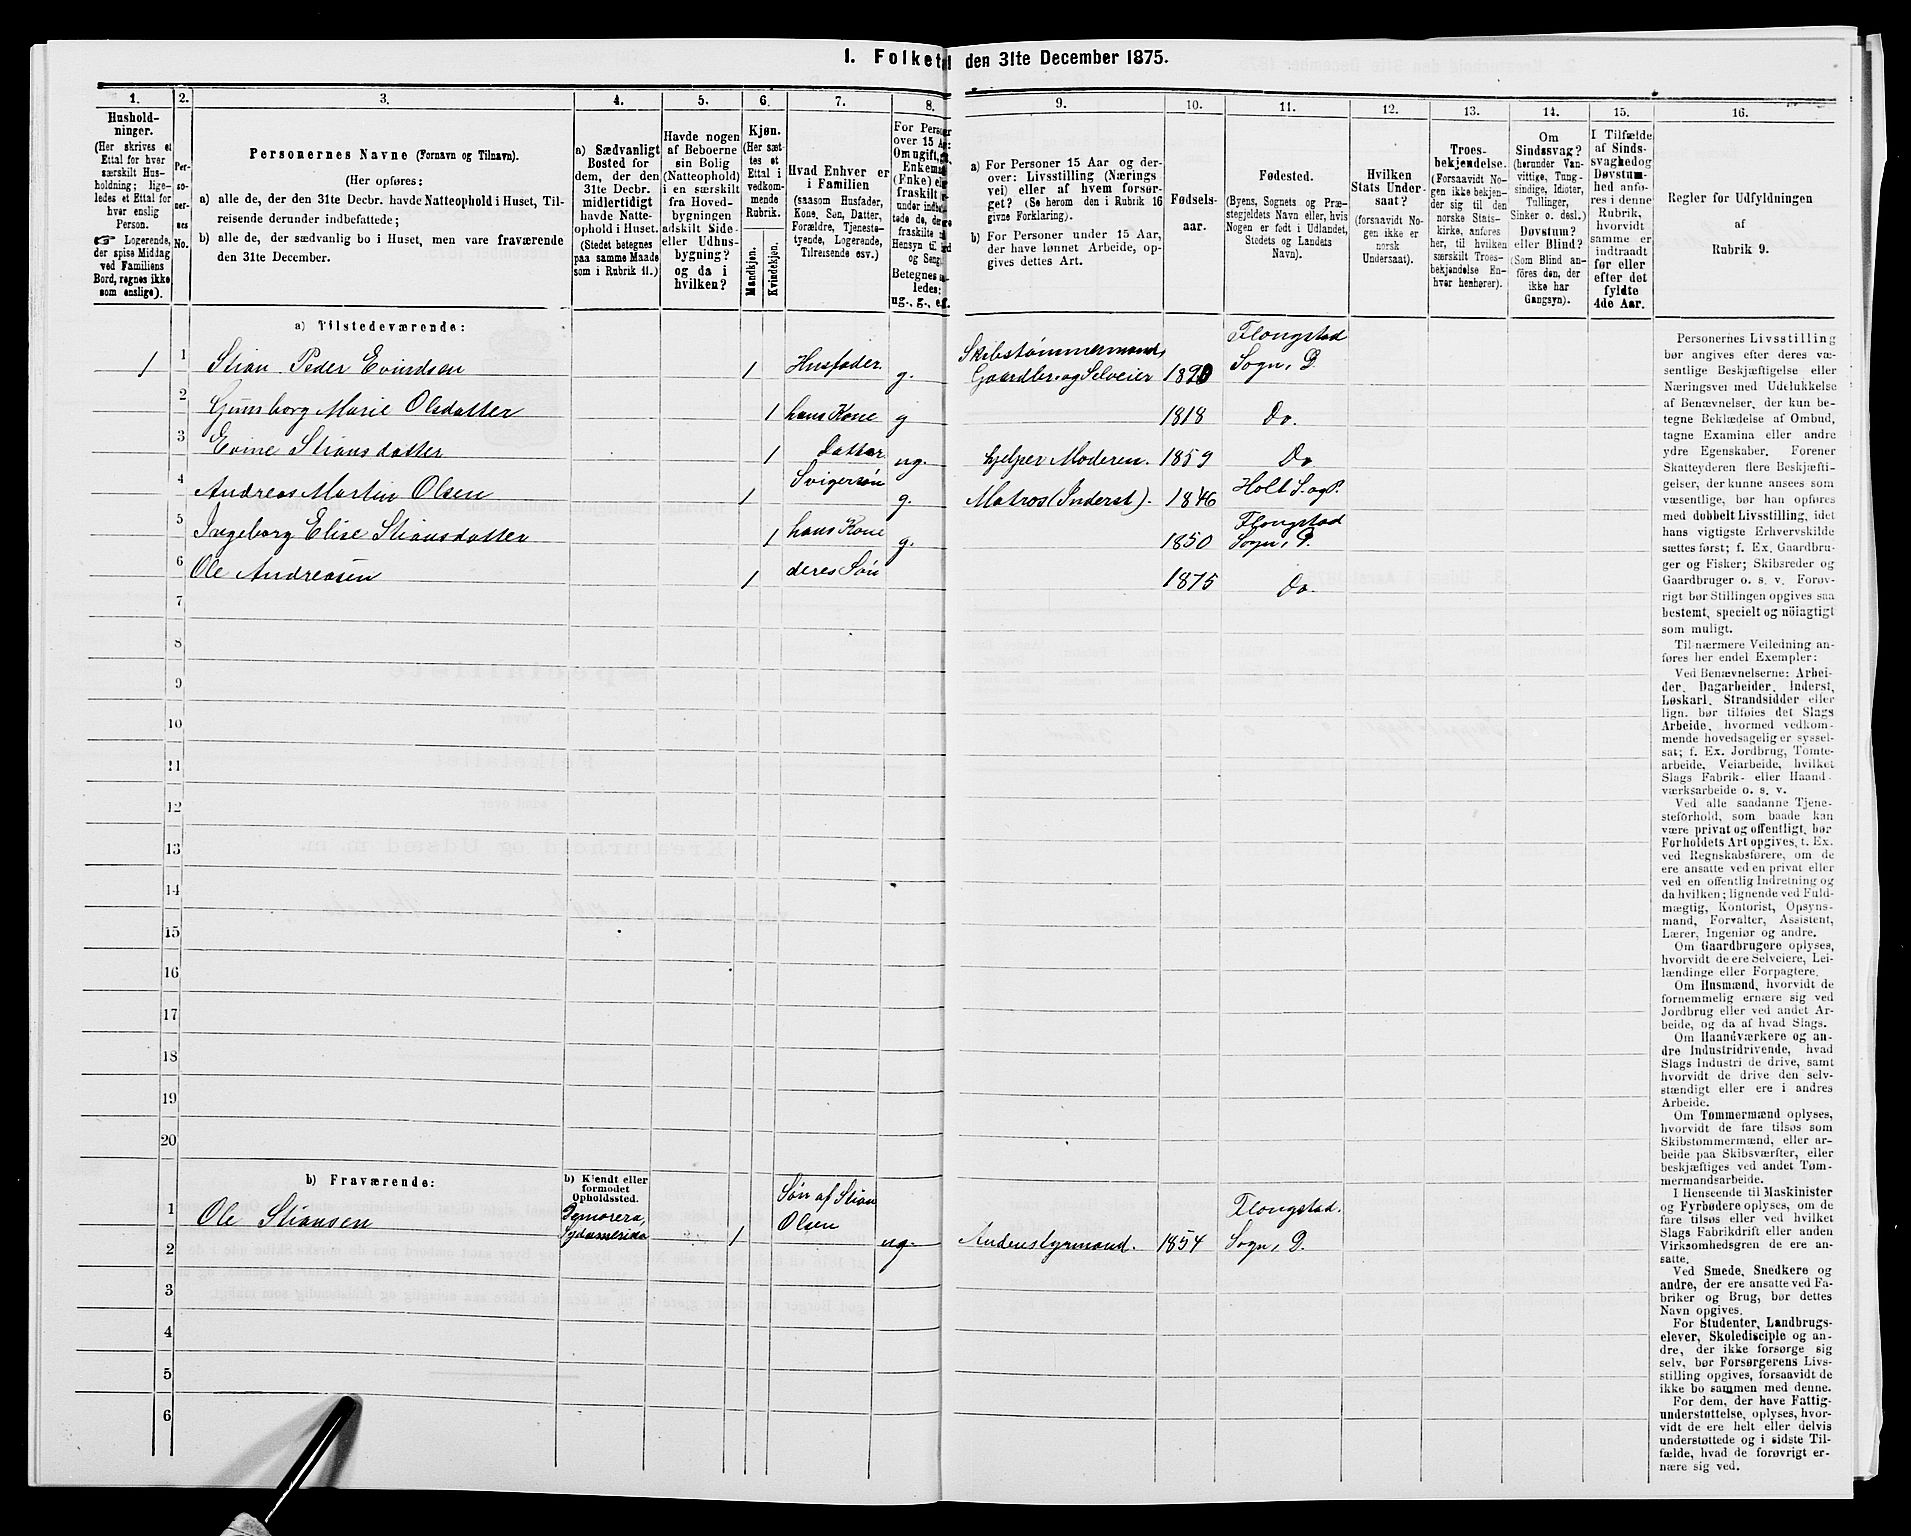 I. Folketal den 31te December 1875.
1.
Hushold-
ninger.
(Her skrives et
Ettal for hver
særskilt Hus-
holdning; lige-
ledes et Ettal for
hver enslig
Person.
☞ Logerende,
der spise Middag
ved Familiens
Bord, regnes ikke
som enslige).
2.
Per-
so-
ner-
nes
No.
3.
Personernes Navne (Fornavn og Tilnavn).
(Her opføres:
a) alle de, der den 31te Decbr. havde Natteophold i Huset, Til-
reisende derunder indbefattede;
b) alle de, der sædvanlig bo i Huset, men vare fraværende
den 31te December.
4.
a) Sædvanligt
Bosted for
dem, der den
31te Decbr.
midlertidigt
havde Natte-
ophold i Huset.
(Stedet betegnes
paa samme Maade
som i Rubrik 11.)
5.
Havde nogen
af Beboerne
sin Bolig
(Natteophold)
i en særskilt
fra Hoved-
bygningen
adskilt Side-
eller Udhus-
bygning?
og da i
hvilken?
6.
Kjøn.
(Her sæt-
tes et
Ettal i
vedkom-
mende
Rubrik.
Mandkjøn.
Kvindekjøn.
7.
Hvad Enhver er
i Familien
(saasom Husfader,
Kone, Søn, Datter,
Forældre, Tjeneste-
tyende, Logerende,
Tilreisende osv.)
8.
For Person
over 15 Aa
Om ugift,
Enkema
(Enke) el
fraskilt
under indbe
tede de, der
fraskilte
Hensyn til
og Seng.
Betegnes
ledes:
ug., g., e.
9.
a) For Personer 15 Aar og der-
over: Livsstilling (Nærings
vei) eller af hvem forsør-
get? (Se herom den i Rubrik 16
givne Forklaring).
b) For Personer under 15 Aar,
der have lønnet Arbeide, op-
gives dettes Art.
10.
Fødsels-
aar.
11.
Fødested.
(Byens, Sognets og Præ-
stegjeldets Navn eller, hvis
Nogen er født i Udlandet,
Stedets og Landets
Navn).
12.
Hvilken
Stats Under-
saat?
(forsaavidt No-
gen ikke er
norsk
Undersaat).
13.
Troes-
bekjendelse.
(Forsaavidt No-
gen ikke bekjen-
der sig til den
norske Stats-
kirke, anføres
her, til hvilken
særskilt Troes-
bekjendelse En-
hver henhører).
14.
Om
Sindssvag?
(herunder Van-
vittige, Tung-
sindige, Idioter,
Tullinger,
Sinker o. desl.)
Døvstum?
eller Blind?
(Som Blind an-
føres den, der
ikke har
Gangsyn).
15.
I Tilfælde
af Sinds-
svaghed og
Døvstum-
hed anfø-
res i denne
Rubrik,
hvorvidt
samme er
indtraadt
før eller
efter det
fyldte
4de Aar.
16.
Regler for Udfyldningen
af
Rubrik 9.
a) Tilstedeværende:
1 1 Stian Peder Evindsen 1 Husfader g. Skibstømmermand, Gaardbr. og Selveier 1820 Flougstad Sogn, P.
2 Gunsborg Marie Olsdatter 1 hans Kone g 1818 Do.
3 Evine Stiansdatter 1 Datter ug. hjelper Moderen. 1859 Do
4 Andreas Martin Olsen 1 Svigersøn g. Matros (Inderst). 1846 Holt S. og P.
5 Ingeborg Elise Stiansdatter 1 hans Kone g. 1850 Flougstad Sogn, P.
6 Ole Andreasen 1 deres Søn 1875 Do.
7
8
9
10
11
12
13
14
15
16
17
18
19
20
b) Fraværende:
b) Kjendt eller
formodet
Opholdssted.
1 Ole Stiansen Demorera, Sydamerida 1 Søn af Stian Olsen ug. Andenstyrmand. 1854 Flougstad. Sogn, P.
2
3
4
5
6
Personernes Livsstilling
bør angives efter deres væ-
sentlige Beskjæftigelse eller
Næringsvei med Udelukkelse
af Benævnelser, der kun be-
tegne Beklædelse af Ombud,
tagne Examina eller andre
ydre Egenskaber. Forener
Skatteyderen flere Beskjæfti-
gelser, der kunne ansees som
væsentlige, bør han opføres
med dobbelt Livsstilling, idet
hans vigtigste Erhvervskilde
sættes først; f. Ex. Gaardbru-
ger og Fisker; Skibsreder og
Gaardbruger o. s. v. Forøv-
rigt bør Stillingen opgives saa
bestemt, specielt og nöiagtigt
som muligt.
Til nærmere Veiledning an-
føres her endel Exempler:
Ved Benævnelserne: Arbei-
der, Dagarbeider, Inderst,
Løskarl, Strandsidder eller
lign. bør tilføies det Slags
Arbeide, hvormed vedkom-
mende hovedsagelig er syssel-
sat; f. Ex. Jordbrug, Tomte-
arbeide, Veiarbeide, hvilket
Slags Fabrik- eller Haand-
værksarbeide o. s. v.
Ved alle saadanne Tjene-
steforhold, som baade kan
være privat og offentligt, bør
Forholdets Art opgives, f. Ex.
ved Regnskabsførere, om de
ere ansatte ved en privat eller
ved en offentlig Indretning og
da hvilken; lignende ved Fuld-
mægtig, Kontorist, Opsyns-
mand, Forvalter, Assistent,
Lærer, Ingeniør og andre.
Om Gaardbrugere oplyses,
hvorvidt de ere Selveiere, Lei-
lændinge eller Forpagtere.
Om Husmænd, hvorvidt de
fornemmelig ernære sig ved
Jordbrug eller ved andet Ar-
beide, og da af hvad Slags.
Om Haandværkere og an-
dre Industridrivende, hvad
Slags Industri de drive, samt
hvorvidt de drive den selv-
stændigt eller ere i andres
Arbeide.
Om Tømmermænd oplyses,
hvorvidt de fare tilsøs som
Skibstømmermænd, eller ar-
beide paa Skibsværfter, eller
beskjæftiges ved andet Tøm-
mermandsarbeide.
I Henseende til Maskinister
og Fyrbødere oplyses, om de
fare tilsøs eller ved hvilket
Slags Fabrikdrift eller anden
Virksomhedsgren de ere an-
satte.
Ved Smede, Snedkere og
andre, der ere ansatte ved Fa-
briker og Brug, bør dettes
Navn opgives.
For Studenter, Landbrugs-
elever, Skoledisciple og an-
dre, der ikke forsørge sig
selv, bør Forsørgerens Livs-
stilling opgives, forsaavidt de
ikke bo sammen med denne.
For dem, der have Fattig-
understøttelse, oplyses, hvor-
vidt de ere helt eller delvis
understøttede og i sidste Til-
fælde, hvad de forøvrigt er-
nære sig ved.